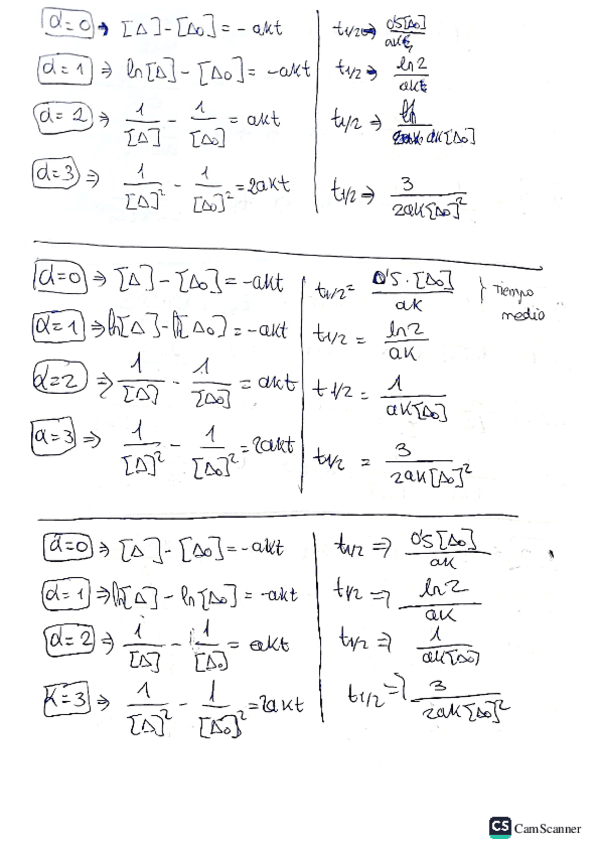 α=0 → [A] - [A₀] = - akt t1/2 → 0'5[A₀]/ak
α=1 ⇒ ln[A] - [A₀] = -akt t1/2 → ln2/ak
α=2 ⇒ 1/[A] - 1/[A₀] = akt t1/2 ⇒ 1/ak[A₀]
α=3 ⇒ 1/[A]² - 1/[A₀]² = 2akt t1/2 ⇒ 3/2ak[A₀]²
α=0 ⇒ [A] - [A₀] = -akt t1/2 = 0'5·[A₀]/ak } Tiempo medio
α=1 ⇒ ln[A] - ln[A₀] = -akt t1/2 = ln2/ak
α=2 ⇒ 1/[A] - 1/[A₀] = akt t1/2 = 1/ak[A₀]
α=3 ⇒ 1/[A]² - 1/[A₀]² = 2akt t1/2 = 3/2ak[A₀]²
α=0 ⇒ [A] - [A₀] = -akt t1/2 ⇒ 0'5[A₀]/ak
α=1 ⇒ ln[A] - ln[A₀] = -akt t1/2 ⇒ ln2/ak
α=2 ⇒ 1/[A] - 1/[A₀] = akt t1/2 ⇒ 1/ak[A₀]
α=3 ⇒ 1/[A]² - 1/[A₀]² = 2akt t1/2 ⇒ 3/2ak[A₀]²
CS CamScanner